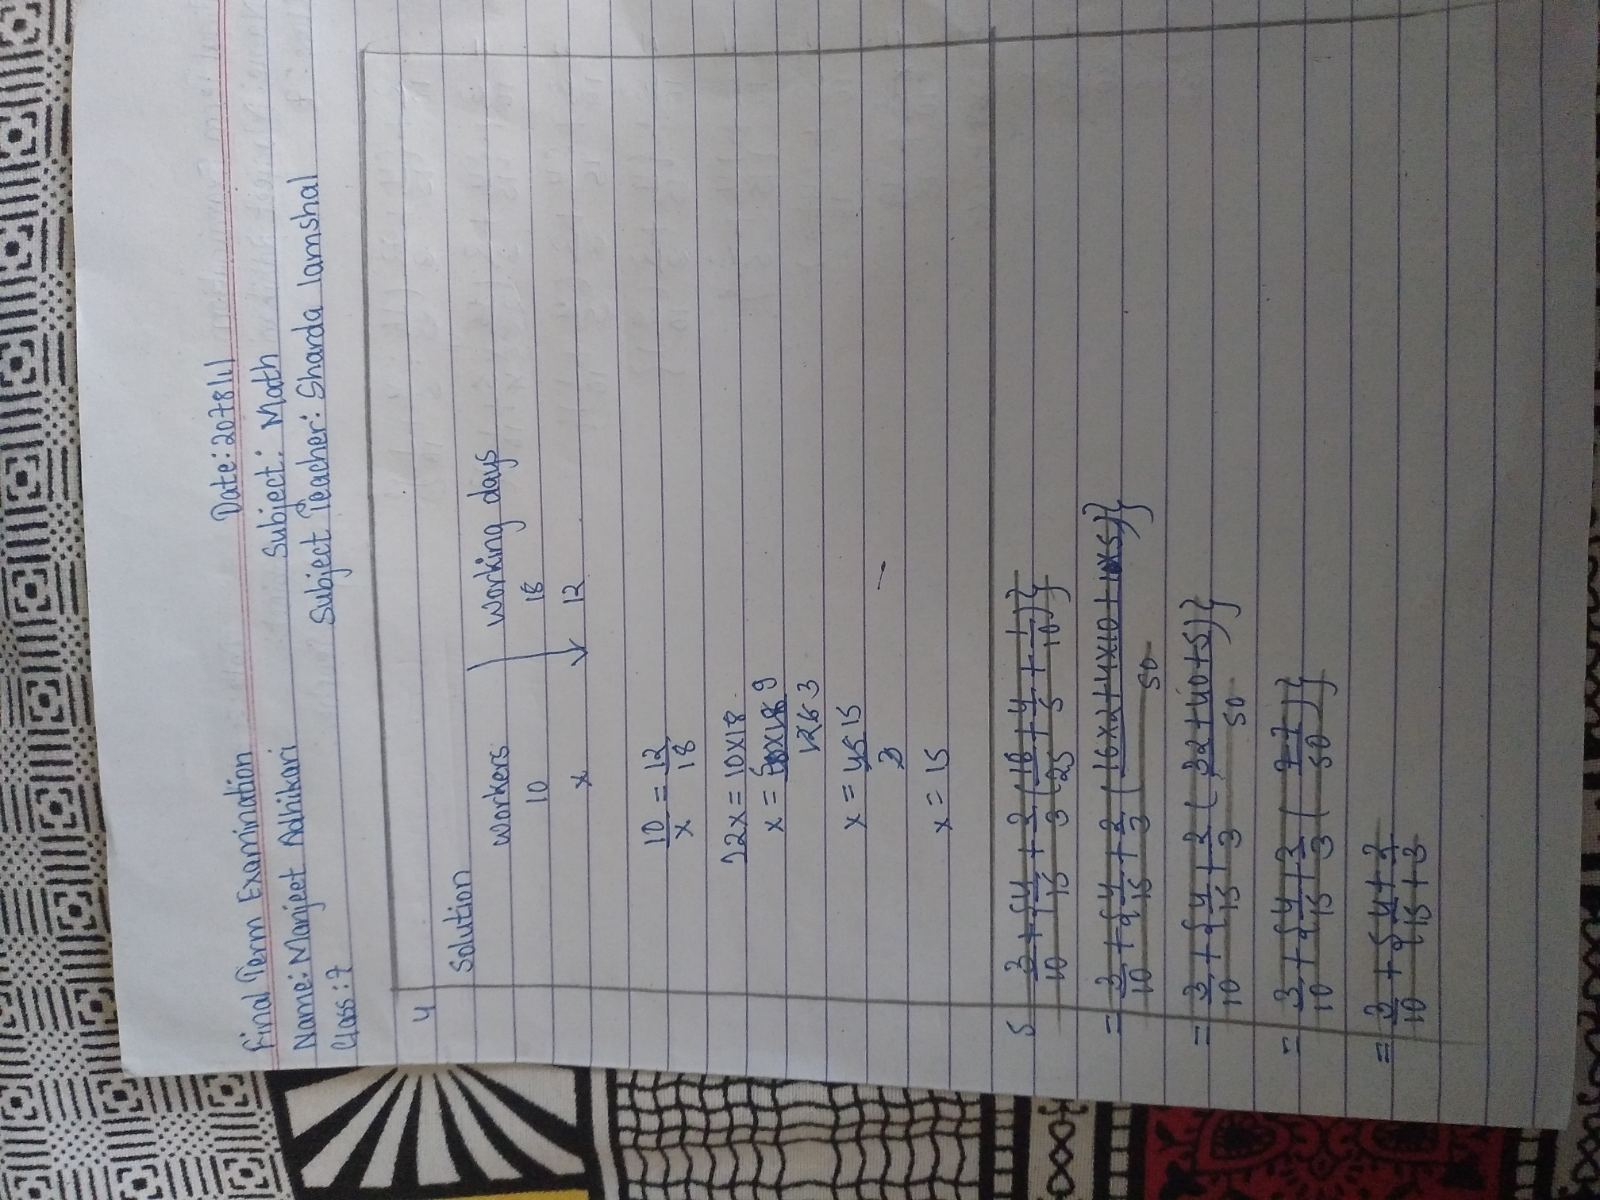 Final Term Examination Date: 2078/1/1
Name: Manjeet Adhikari Subject: Math
Class: 7 Subject Teacher: Sharda lamshal
4
Solution
Workers Working days
10 18
x 12
10/x = 12/18
12x = 10x18
x =
x = 45 15
3
x = 15
5 3/10 + { 4/15 + 2/3 ( 16/25 + 4/5 + 1/10 ) }
= 3/10 + { 4/15 + 2/3 ( 16x2+4x10+1x5 / 50 ) }
= 3/10 + { 4/15 + 2/3 ( 32+40+5 / 50 ) }
= 3/10 + { 4/15 + 2/3 ( 77/50 ) }
= 3/10 + { 4+2 / 15+3